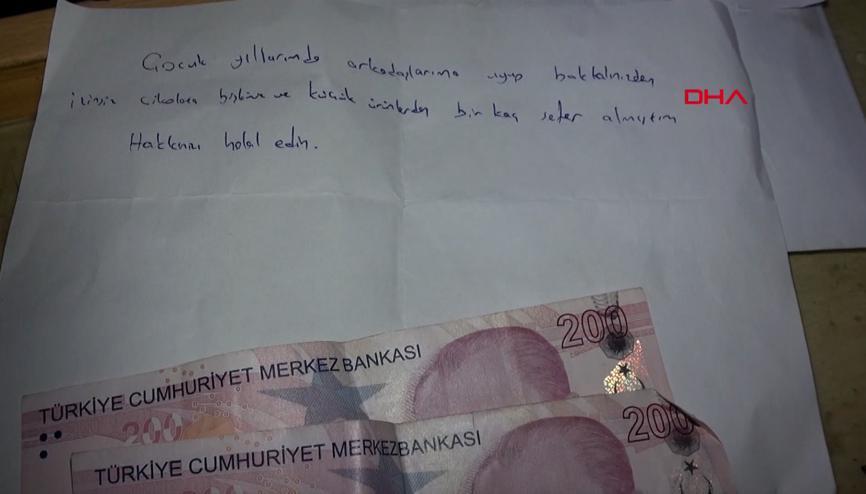 Çocuk yıllarımda arkadaşlarıma uyup bakkalınızdan
DHA
izinsiz çikolata bisküvi ve küçük ürünlerden bir kaç sefer almıştım
Hakkınızı helal edin.
200
TÜRKİYE CUMHURİYET MERKEZ BANKASI
200
200
TÜRKİYE CUMHURİYET MERKEZ BANKASI